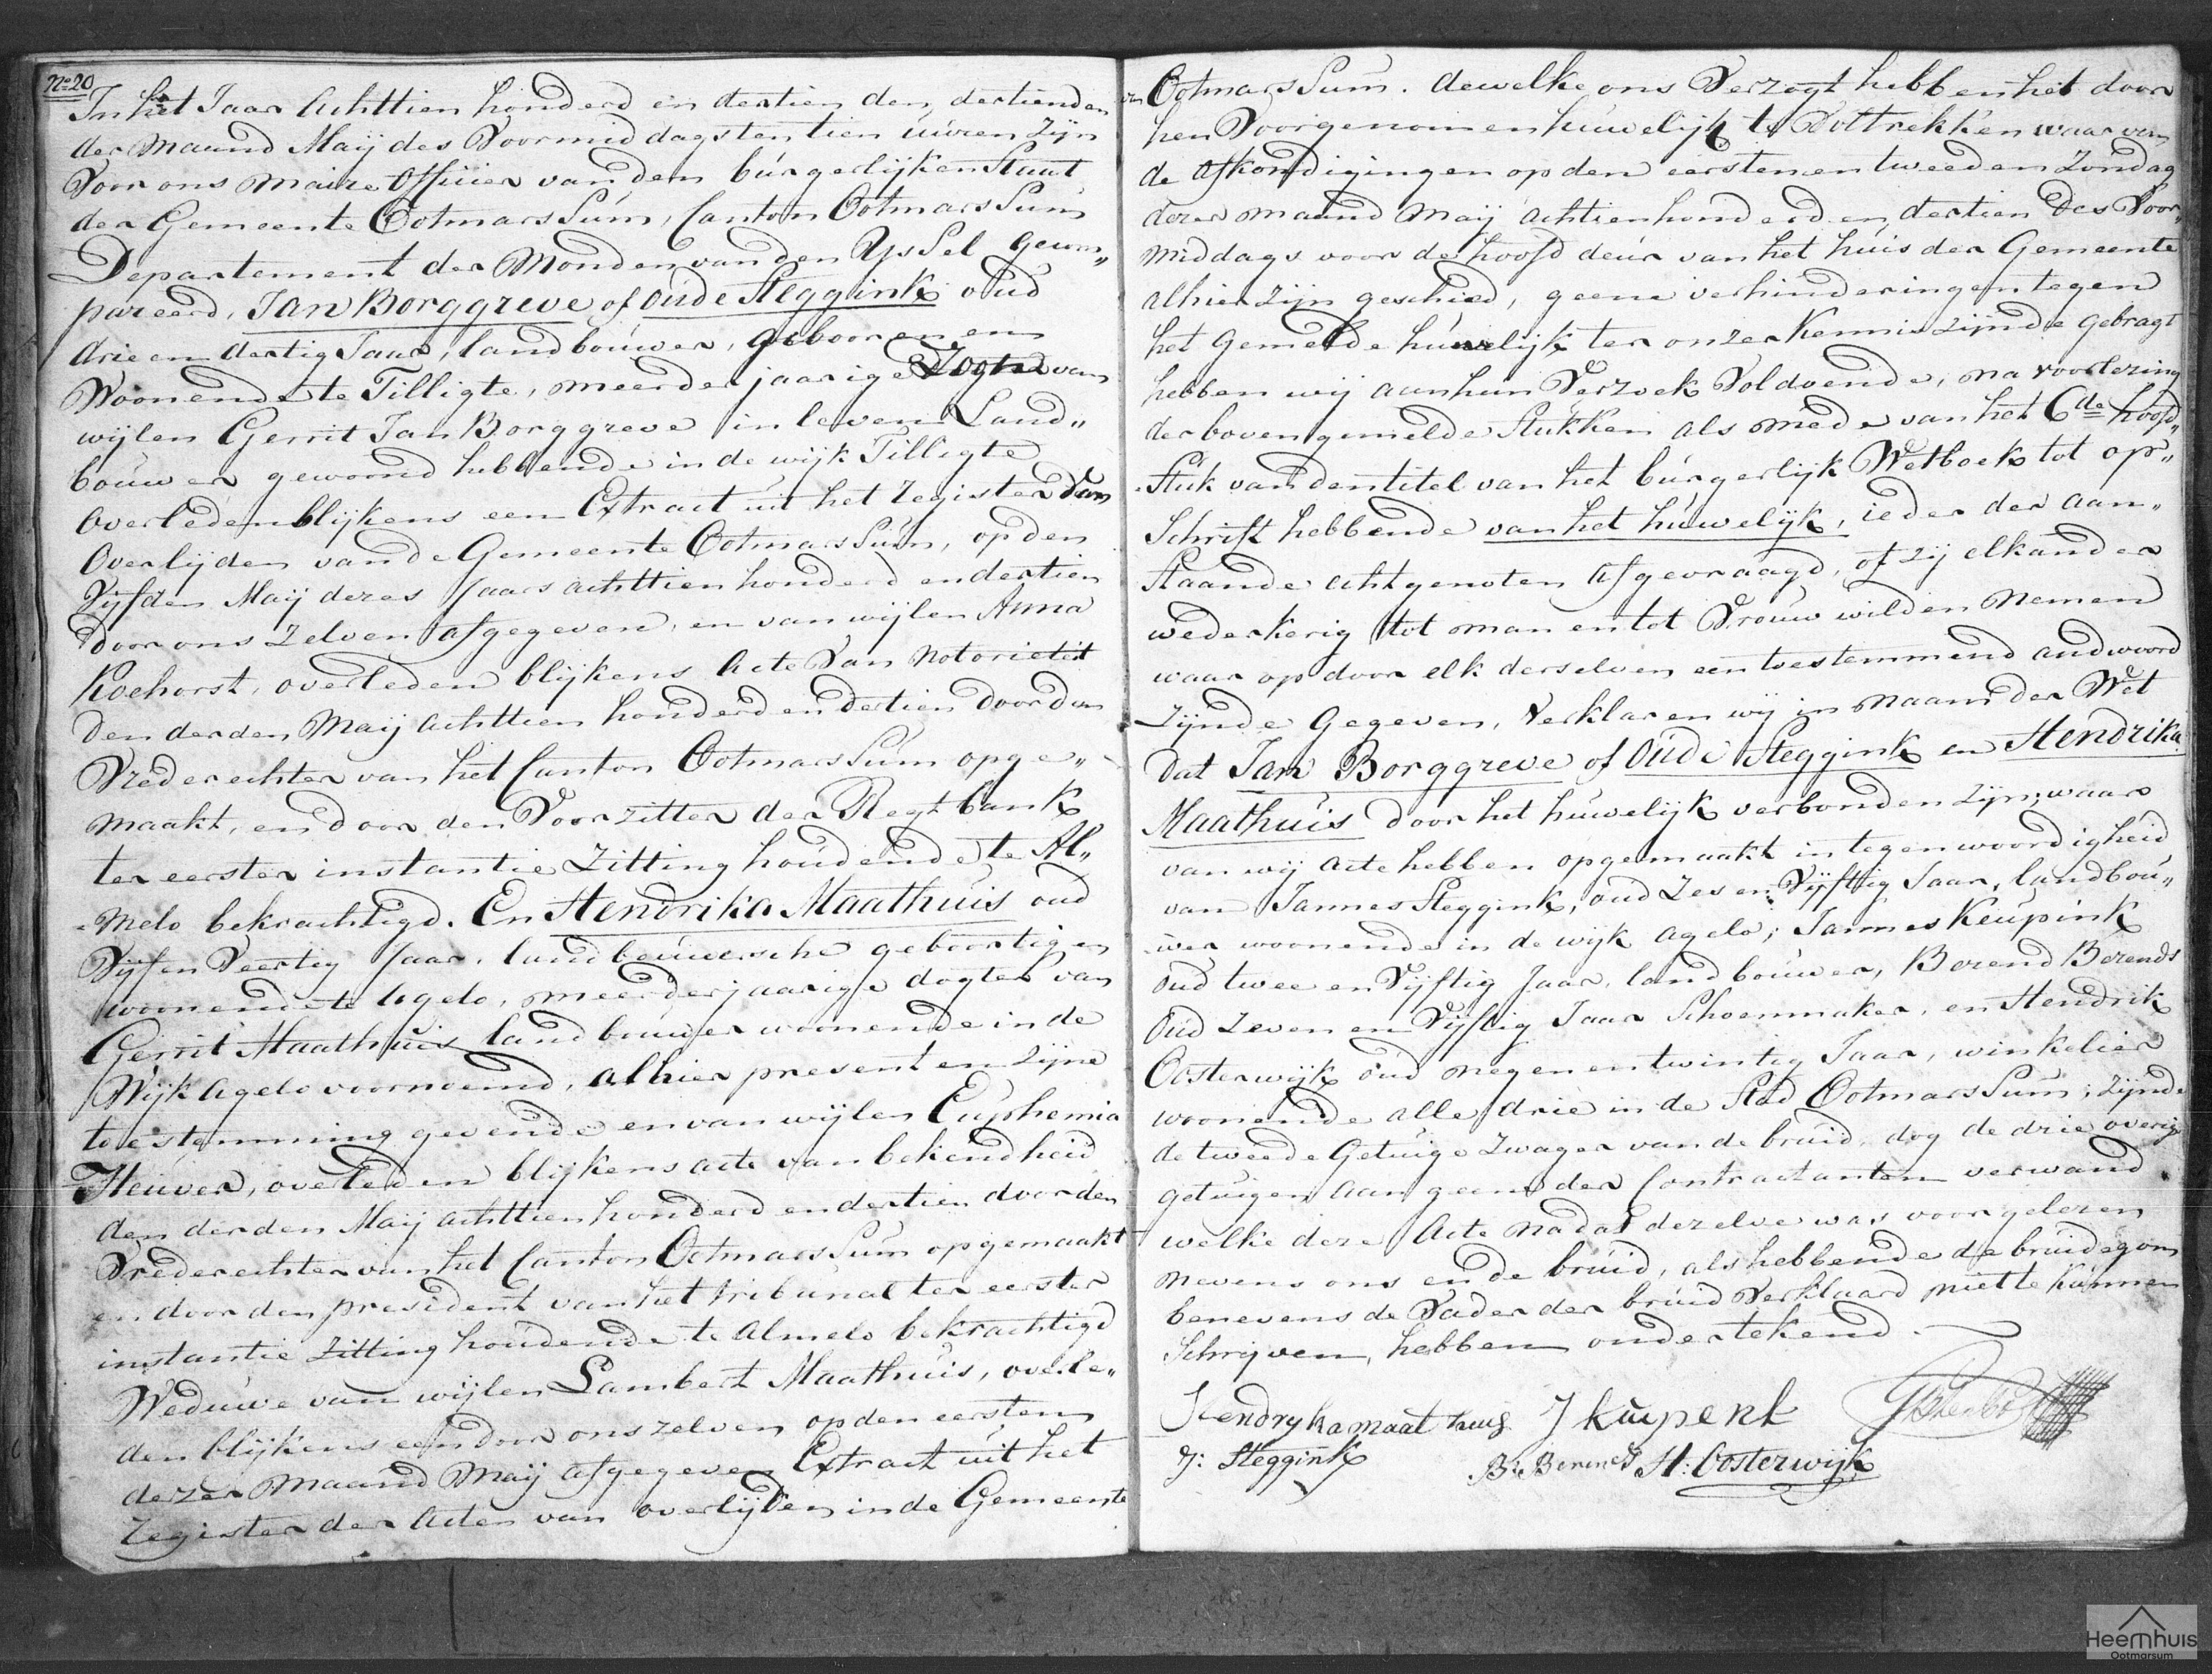 No 20
In het Jaar Achttien honderd en dertien den dertienden
der maand Maij des Voormiddags ten tien úúren zijn
Voor ons Maire Officier van den búrgerlijken Staat
der Gemeente OotmarsSúm, Canton OotmarsSúm
Departement der Monden van den YsSel gecom„
pareerd, Jan Borggreve of Oúde Steggink oúd
drie en dertig Jaar, landboúwer, gebooren en
Woonende te Tilligte, meerderjaarige Zogn van
wijlen Gerrit Jan Borggreve in leven Land„
boúwer gewoond hebbende in de wijk Tilligte
Overleden blijkens een Extract uit het Register van
Overlijden van de Gemeente OotmarsSúm, op den
Vijfden Maij dezes Jaars achttien honderd en dertien
door ons zelven afgegeven, en van wijlen Anna
Koehorst, overleden blijkens Acte Van Notorieteit
Den derden Maij Achttien honderd en dertien door den
Vrederechter van het Canton OotmarsSúm opge„
maakt, en door den Voorzitter der Regtbank
ter eerster instantie Zitting hoúdende te Al„
melo bekrachtigd. En Hendrika Maathuis oúd
Vijf en Veertig Jaar, landboúwersche geboortig en
woonende te Agelo, meerderjaarige dogter van
Gerrit Maathúis landboúwer woonende in de
Wijk Agelo voornoemd, alhier present en zijne
toestemming gevende en van wijlen Eúphemia
Heúver, overleden blijkens acte van bekendheid
den derden Maij Achttien honderd en dertien door den
Vrederechter van het Canton OotmarsSúm opgemaakt
en door den president van het tribunal ter eerster
instantie Zitting hoúdende te Almelo bekrachtigd
Wedúwe van wijlen Lambert Maathúis, overle„
den blijkens een door ons zelven op den eersten
dezer Maand Maij afgegeven Extract uit het
Register der Acten van overlijden in de Gemeente
van OotmarsSúm. dewelke ons Verzogt hebben het door
hen Voorgenomen húwelijk te Voltrekken waar van
de Afkondigingen op den eersten en tweeden Zondag
dezer maand Maij achtienhonderd en dertien des Voor„
middags voor de hoofd deúr van het húis der Gemeente
alhier zijn geschied, geene verhinderingen tegen
het Gemelde húwelijk ter onzer kennis zijnde gebragt
hebben wij aan hun Verzoek Voldoende, na voorlezing
der bovengemelde Stukken als mede van het 6de hoofd„
Stuk van den titel van het búrgerlijk Wetboek tot op„
Schrift hebbende van het húwelijk, ieder der aan„
Staande Achtgenoten afgevraagd, of zij elkander
wederkerig tot man en tot Vroúw wilden Nemen
waar op door elk derselven een toestemmend andwoord
zijnde Gegeven, Verklaren wij in Naam der Wet
dat Jan Borggreve of Oúde Steggink en Hendrika
Maathuis door het húwelijk verbonden zijn, waar
van wij Acte hebben opgemaakt in tegenwoordigheid
van Jannes Steggink, oúd Zes en Vijftig Jaar, landboú„
wer woonende in de wijk Agelo; Jannes Keúpink
oúd twee en Vijftig Jaar, landboúwer, Berend Berends
Oúd Zeven en Vijftig Jaar Schoenmaker, en Hendrik
Oosterwijk oúd negen en twintig Jaar, winkelier
woonende alle drie in de Stad OotmarsSúm; zijnde
de tweede Getúige Zwager van de brúid, dog de drie overige
getúigen aan geene der Contractanten verwand
welke deze Acte nadat dezelve was voorgelezen
nevens ons en de brúid, als hebbende de brúidegom
benevens de Vader der brúid Verklaard niet te kúnnen
Schrijven, hebben ondertekend.
Hendryka maat huis J kúipenk
J: Steggink B: Berends H: Oosterwijk
Heemhuis
Ootmarsum